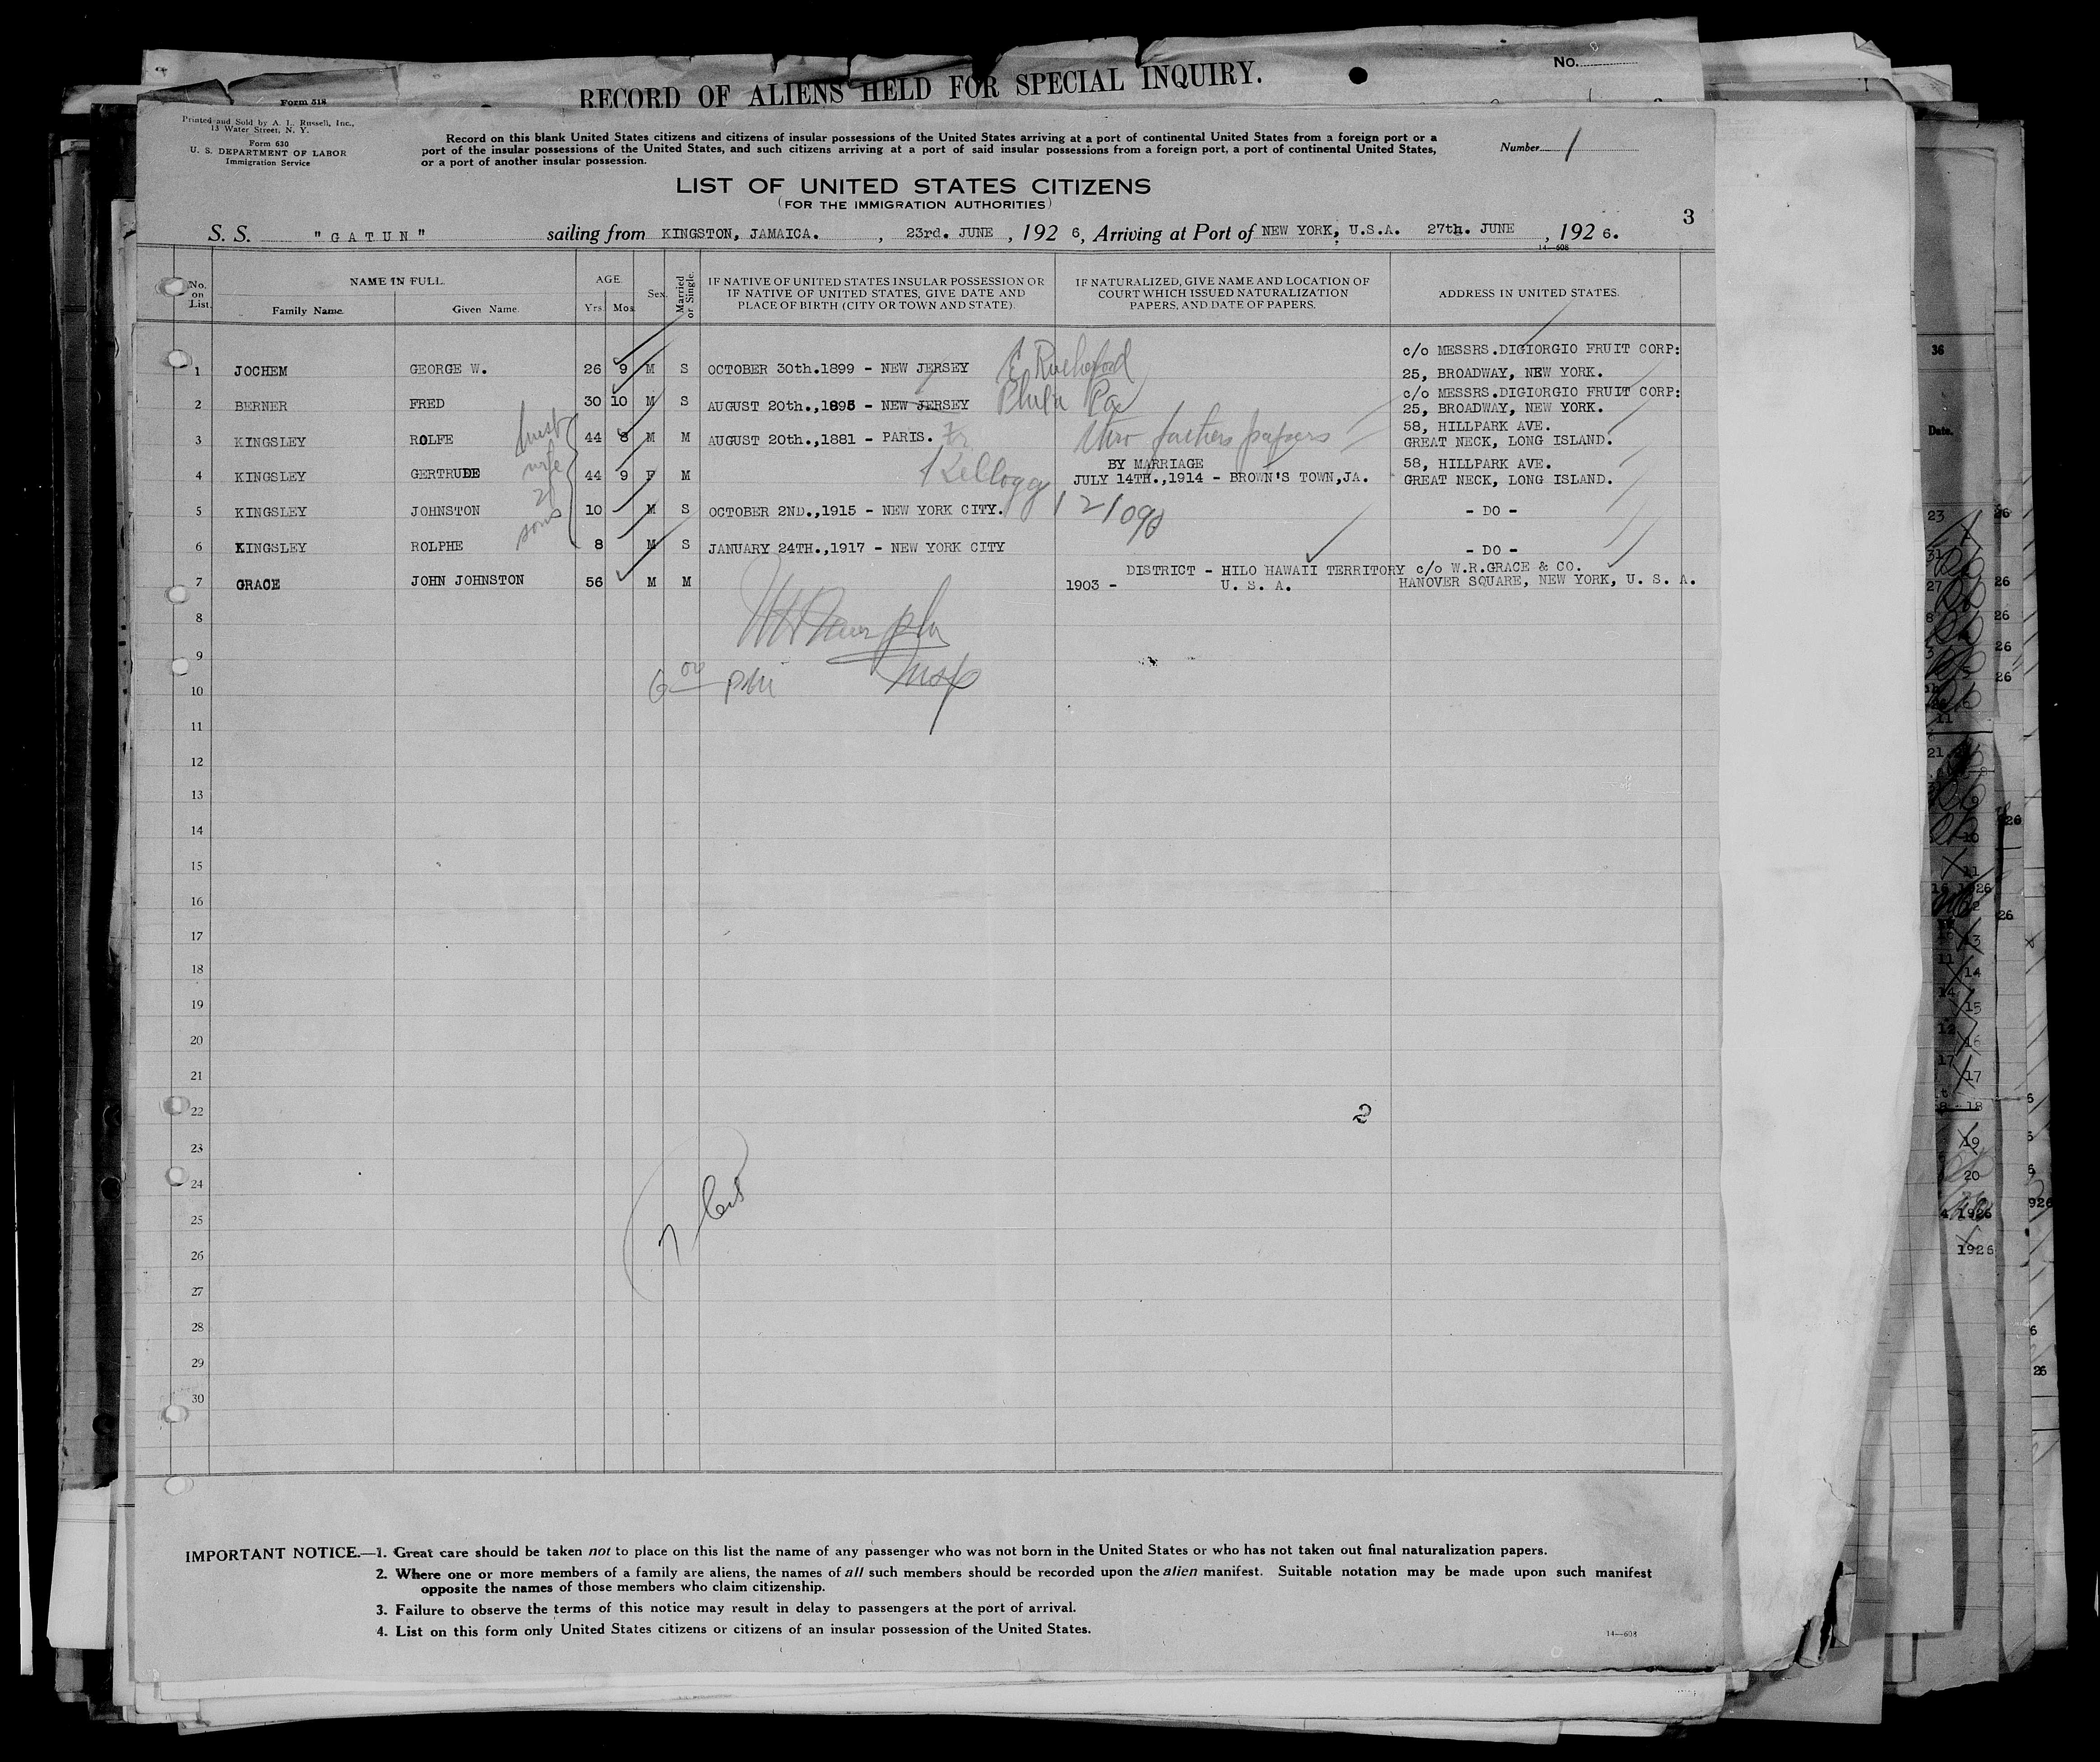 RECORD OF ALIENS HELD FOR SPECIAL INQUIRY.
No.
Form 518
Printed and Sold by A. L. Russell, Inc.,
13 Water Street, N. Y.
Form 630
U. S. DEPARTMENT OF LABOR
Immigration Service
Record on this blank United States citizens and citizens of insular possessions of the United States arriving at a port of continental United States from a foreign port or a
port of the insular possessions of the United States, and such citizens arriving at a port of said insular possessions from a foreign port, a port of continental United States,
or a port of another insular possession.
Number 1
LIST OF UNITED STATES CITIZENS
(FOR THE IMMIGRATION AUTHORITIES)
3
S. S. "GATUN" sailing from KINGSTON, JAMAICA. , 23rd. JUNE , 192 6, Arriving at Port of NEW YORK, U.S.A. 27th. JUNE , 192 6.
14—608
No. on List.
NAME IN FULL.
Family Name. Given Name.
AGE.
Yrs. Mos.
Sex.
Married or Single.
IF NATIVE OF UNITED STATES INSULAR POSSESSION OR
IF NATIVE OF UNITED STATES, GIVE DATE AND
PLACE OF BIRTH (CITY OR TOWN AND STATE).
IF NATURALIZED, GIVE NAME AND LOCATION OF
COURT WHICH ISSUED NATURALIZATION
PAPERS, AND DATE OF PAPERS.
ADDRESS IN UNITED STATES.
c/o MESSRS.DIGIORGIO FRUIT CORP:
1 JOCHEM GEORGE W. 26 9 M S OCTOBER 30th.1899 - NEW JERSEY E Rutherford 25, BROADWAY, NEW YORK.
c/o MESSRS.DIGIORGIO FRUIT CORP:
2 BERNER FRED 30 10 M S AUGUST 20th.,1895 - NEW JERSEY Phila Pa 25, BROADWAY, NEW YORK.
58, HILLPARK AVE.
3 KINGSLEY ROLFE 44 8 M M AUGUST 20th.,1881 - PARIS. Fr thro fathers papers GREAT NECK, LONG ISLAND.
BY MARRIAGE 58, HILLPARK AVE.
4 KINGSLEY GERTRUDE wife 44 9 F M Kellogg JULY 14TH.,1914 - BROWN'S TOWN,JA. GREAT NECK, LONG ISLAND.
5 KINGSLEY JOHNSTON 2 10 M S OCTOBER 2ND.,1915 - NEW YORK CITY. - DO -
6 KINGSLEY ROLPHE sons 8 M S JANUARY 24TH.,1917 - NEW YORK CITY - DO -
DISTRICT - HILO HAWAII TERRITORY c/o W.R.GRACE & CO.
7 GRACE JOHN JOHNSTON 56 M M 1903 - U. S. A. HANOVER SQUARE, NEW YORK, U. S. A.
8
9
Insp
6 00 PM
10
11
12
13
14
15
16
17
18
19
20
21
22
2
23
24
25
26
27
28
29
30
IMPORTANT NOTICE.—1. Great care should be taken not to place on this list the name of any passenger who was not born in the United States or who has not taken out final naturalization papers.
2. Where one or more members of a family are aliens, the names of all such members should be recorded upon the alien manifest. Suitable notation may be made upon such manifest
opposite the names of those members who claim citizenship.
3. Failure to observe the terms of this notice may result in delay to passengers at the port of arrival.
4. List on this form only United States citizens or citizens of an insular possession of the United States.
14—608